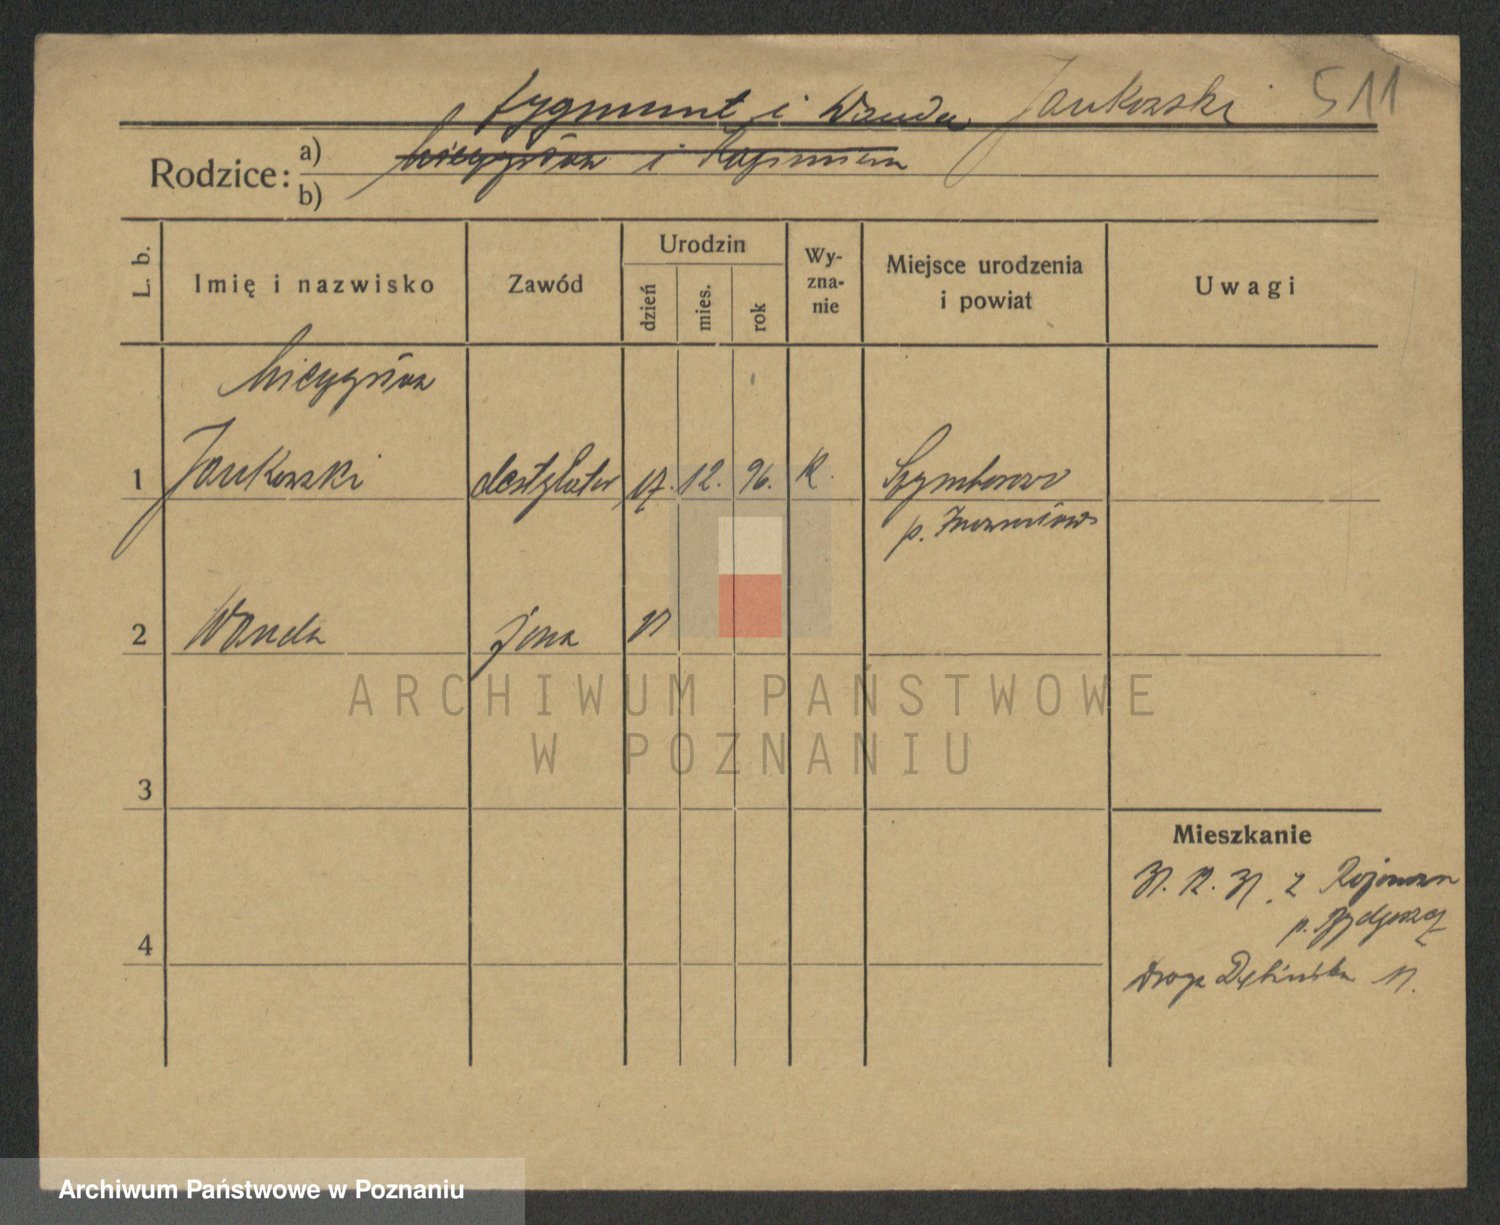 Zygmunt i Wanda Jankowski 511
i Kazimiera
Rodzice: a)
b)
L. b.
Imię i nazwisko
Zawód
Urodzin
dzień
mies.
rok
Wy-
zna-
nie
Miejsce urodzenia
i powiat
Uwagi
1 Jankowski destylator 17. 12. 96. K. Szymborze
p. Inowrocław
2 Wanda żona
ARCHIWUM PAŃSTWOWE
W POZNANIU
3
Mieszkanie
31. 12. 31. z
p. Bydgoszcz
4
Droga Dębińska 11.
Archiwum Państwowe w Poznaniu